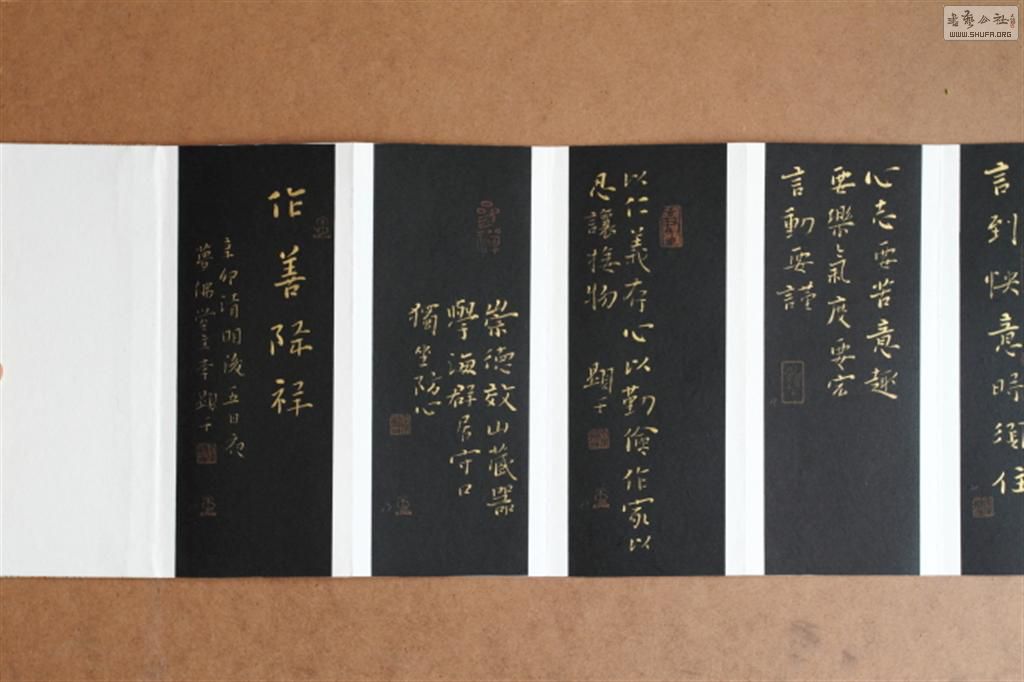 言到快意時須住
心志要苦意趣
要樂氣度要宏
言動要謹
以仁義存心以勤儉作家以
忍讓接物
顯干
崇德效山藏器
學海群居守口
獨坐防心
作善降祥
辛卯清明後五日夜
夢偶堂主李顯干
書藝公社
WWW.SHUFA.ORG